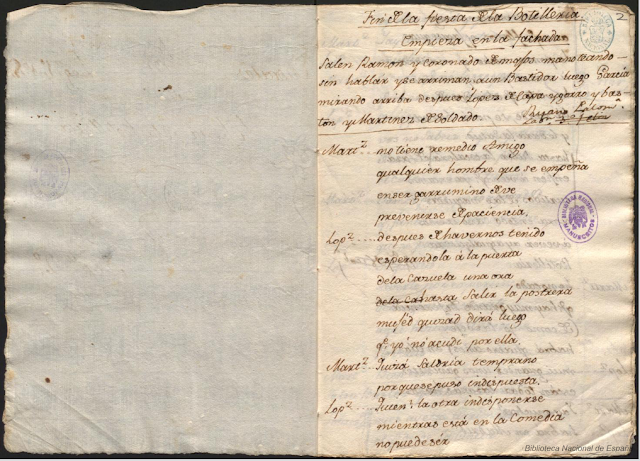 2
Fin de la fiesta de la Botilleria.
Empieza en la fachada.
Salen Ramon y Coronado de majos manoteando
sin hablar y se arriman a un Bastidor luego Garcia
mirando arriba despues Lopez de Capa y gorro y bas-
ton y Martinez de Soldado.
Mart.z no tiene remedio Amigo
qualquier hombre que se empeña
en ser garrumino deve
prevenirse de paciencia.
Lop.z .... despues de havernos tenido
esperandola á la puerta
de la Cazuela una ora
de la Canasta Salir la postrera
musèd quizad dirá luego
q.e yo no acudi por ella.
Mart.z Quiza Saldria temprano
porque se puso indispuesta.
Lop.z Quien? la otra indisponerse
mientras está en la Comedia
no puede ser
BIBLIOTECA NACIONAL
MANUSCRITOS
Biblioteca Nacional de España